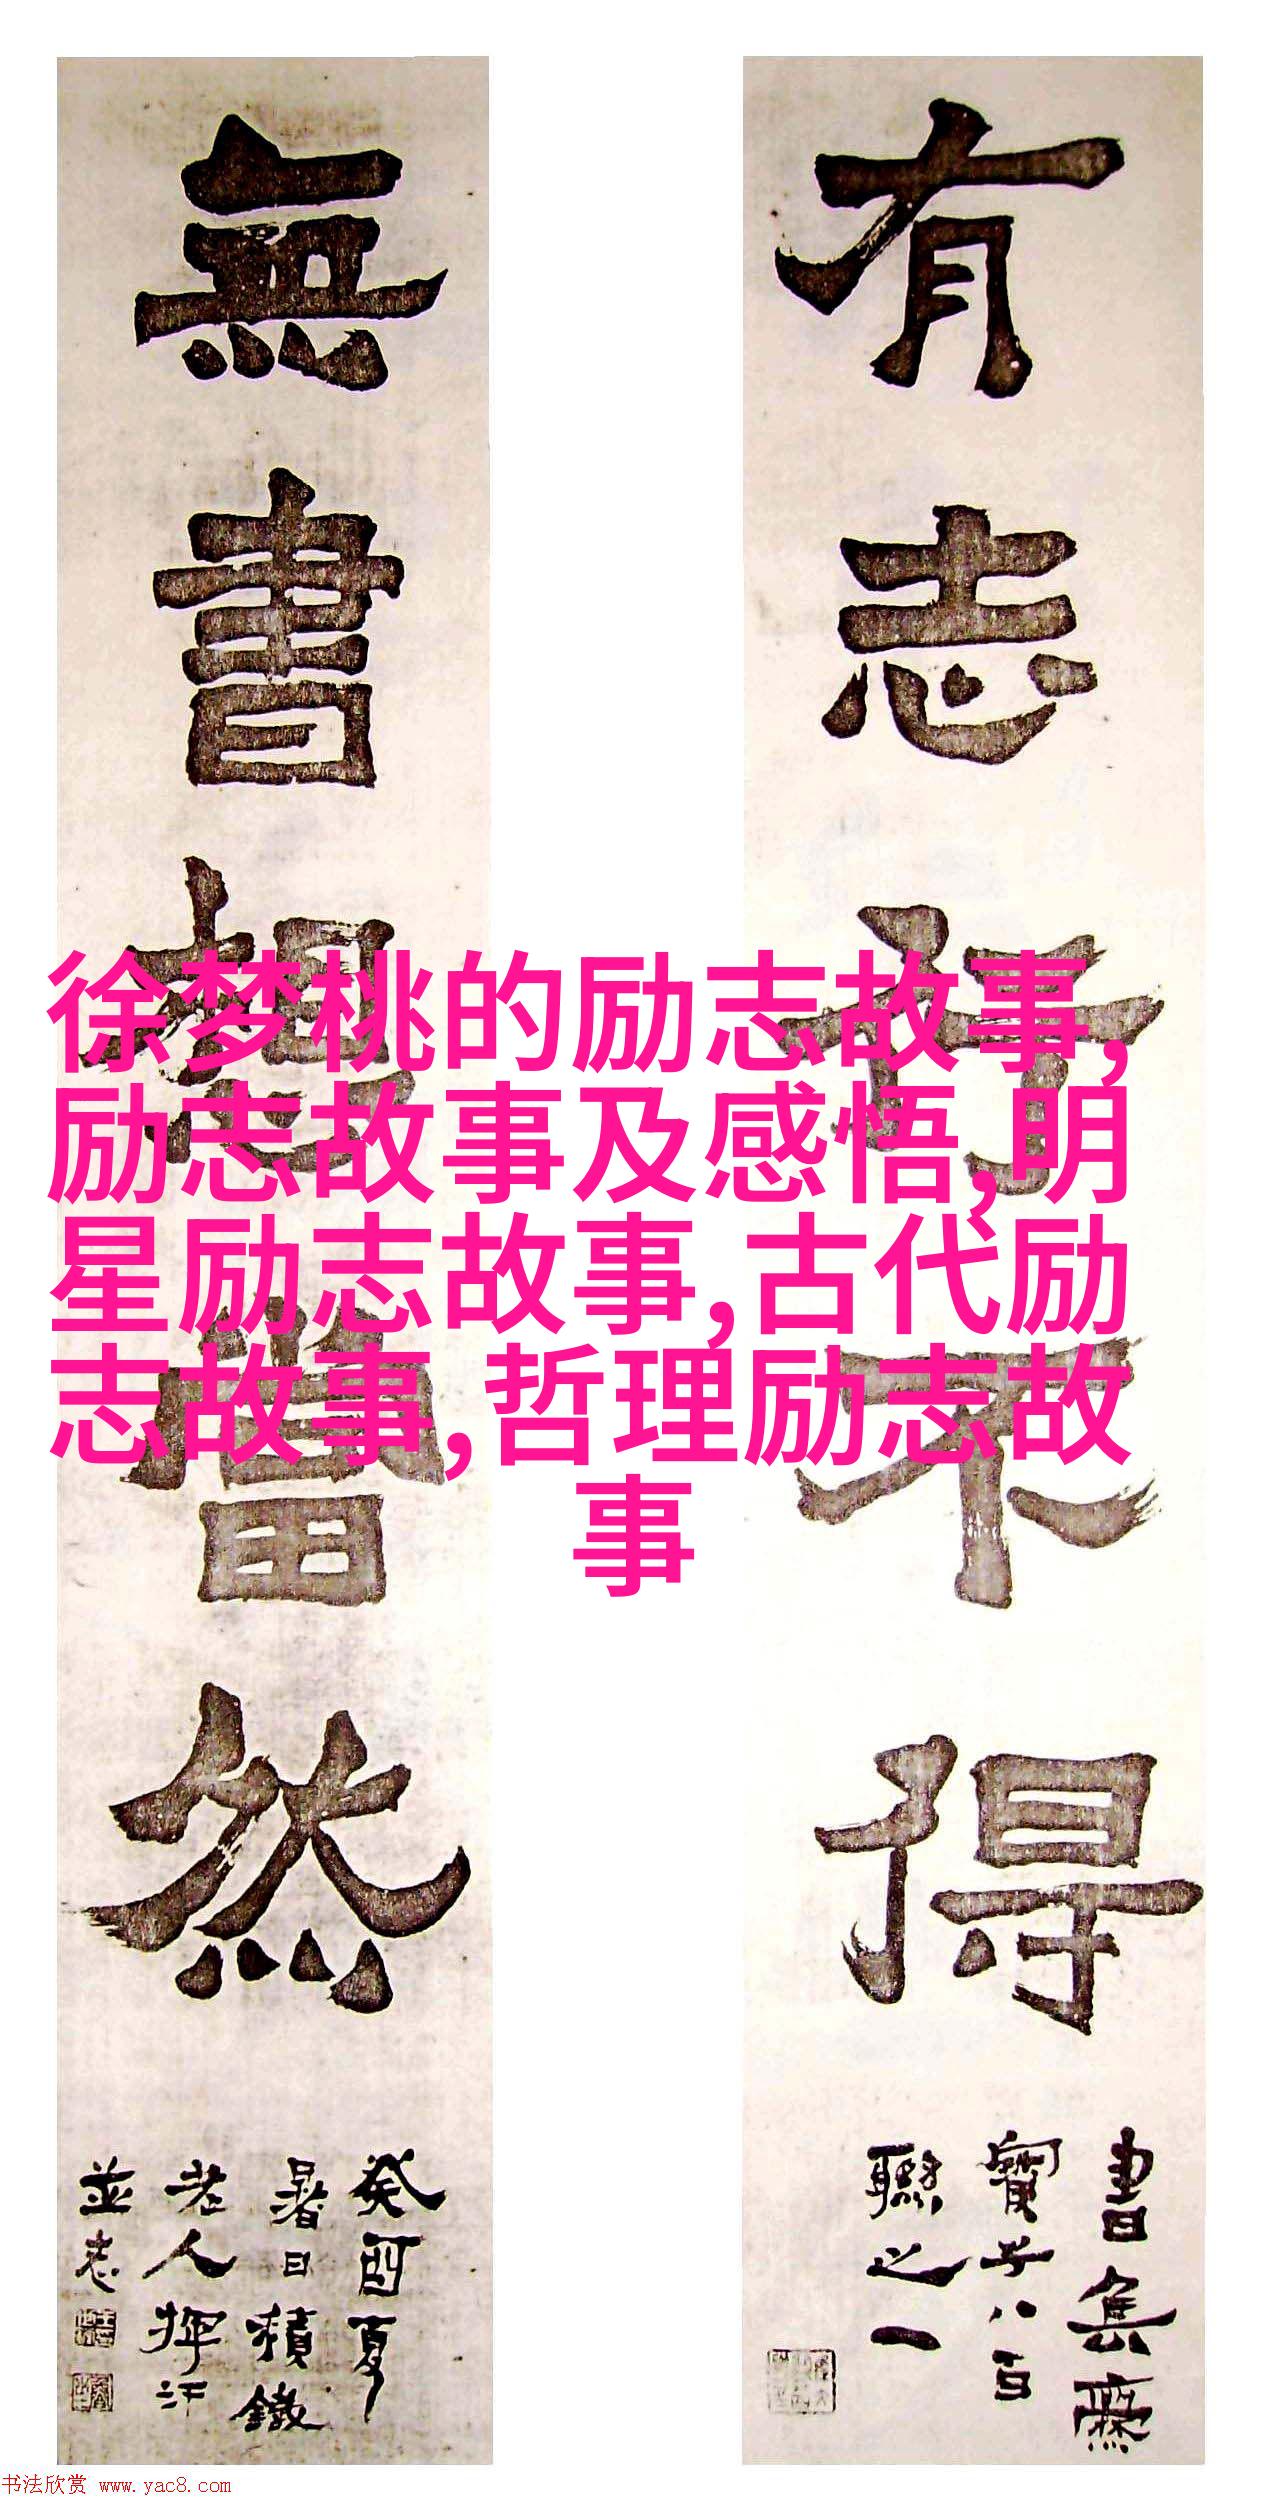 有志行不得
書集爨
寶子八百
聯之一
無書想當然
癸酉夏
暑日積鐵
老人揮汗
並志
徐梦桃的励志故事,
励志故事及感悟,明
星励志故事,古代励
志故事,哲理励志故
事
书法欣赏 www.yac8.com